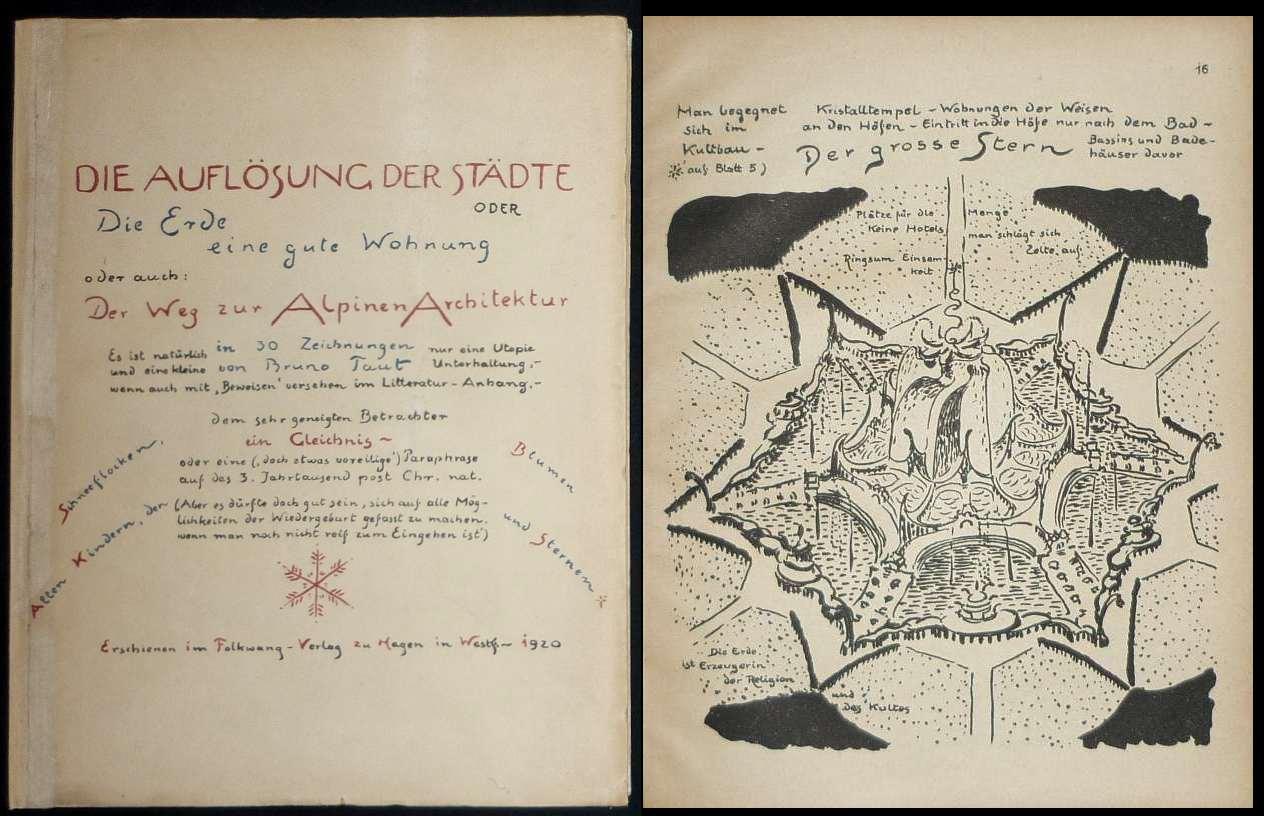 DIE AUFLÖSUNG DER STÄDTE
ODER
Die Erde
eine gute Wohnung
oder auch:
Der Weg zur Alpinen Architektur
Es ist natürlich in 30 Zeichnungen nur eine Utopie
und eine kleine von Bruno Taut Unterhaltung,-
wenn auch mit ,Beweisen' versehen im Litteratur-Anhang.-
dem sehr geneigten Betrachter
ein Gleichnis~
oder eine (,doch etwas voreilige') Paraphrase
auf das 3. Jahrtausend post Chr. nat.
(Aber es dürfte doch gut sein, sich auf alle Mög-
lichkeiten der Wiedergeburt gefasst zu machen,
wenn man noch nicht reif zum Eingehen ist)
Allen Kindern, der Schneeflocken,
Blumen und Sternen
Erschienen im Folkwang-Verlag zu Hagen in Westf.~ 1920
16
Man begegnet
sich im
Kultbau -
auf Blatt 5)
Kristalltempel - Wohnungen der Weisen
an den Höfen - Eintritt in die Höfe nur nach dem Bad -
Bassins und Bade-
häuser davor
Der grosse Stern
Plätze für die Menge
Keine Hotels man schlägt sich
Zelte auf
Ringsum Einsam-
keit
Die Erde
ist Erzeugerin
der Religion
und
des Kultes